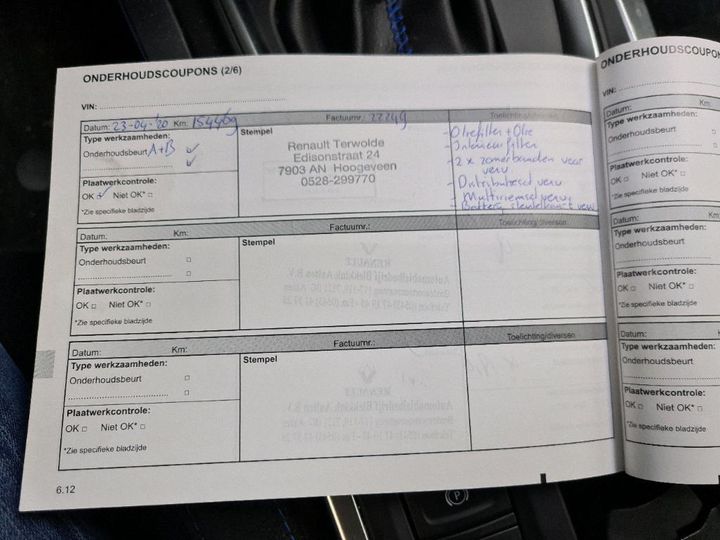 ONDERHOUDSCOUPONS (2/6)
VIN:
Datum: 23-04-'20 Km: 154469 Factuurnr.: 22249 Toelichting/diversen
Type werkzaamheden:
Onderhoudsbeurt A+B ✓
✓
Plaatwerkcontrole:
OK ✓ Niet OK* □
*Zie specifieke bladzijde
Stempel
Renault Terwolde
Edisonstraat 24
7903 AN Hoogeveen
0528-299770
- Oliefilter + Olie
- Interieurfilter
- 2 x zomerbanden voor
verv
- Distributieset verv
- Multiriemset verv
- Battery sleutelkaart verv
Datum: Km: Factuurnr.: Toelichting/diversen
Type werkzaamheden:
Onderhoudsbeurt □
□
Plaatwerkcontrole:
OK □ Niet OK* □
*Zie specifieke bladzijde
Stempel
Datum: Km: Factuurnr.: Toelichting/diversen
Type werkzaamheden:
Onderhoudsbeurt □
□
Plaatwerkcontrole:
OK □ Niet OK* □
*Zie specifieke bladzijde
Stempel
6.12
ONDERHOUDSCOUPON
VIN:
Datum:
Type werkzaamheden
Onderhoudsbeurt
Plaatwerkcontrole:
OK □ Niet OK* □
*Zie specifieke bladzijde
Datum:
Type werkzaamheden:
Onderhoudsbeurt
Plaatwerkcontrole:
OK □ Niet OK* □
*Zie specifieke bladzijde
Datum:
Type werkzaamheden:
Onderhoudsbeurt
Plaatwerkcontrole:
OK □ Niet OK* □
*Zie specifieke bladzijde
P